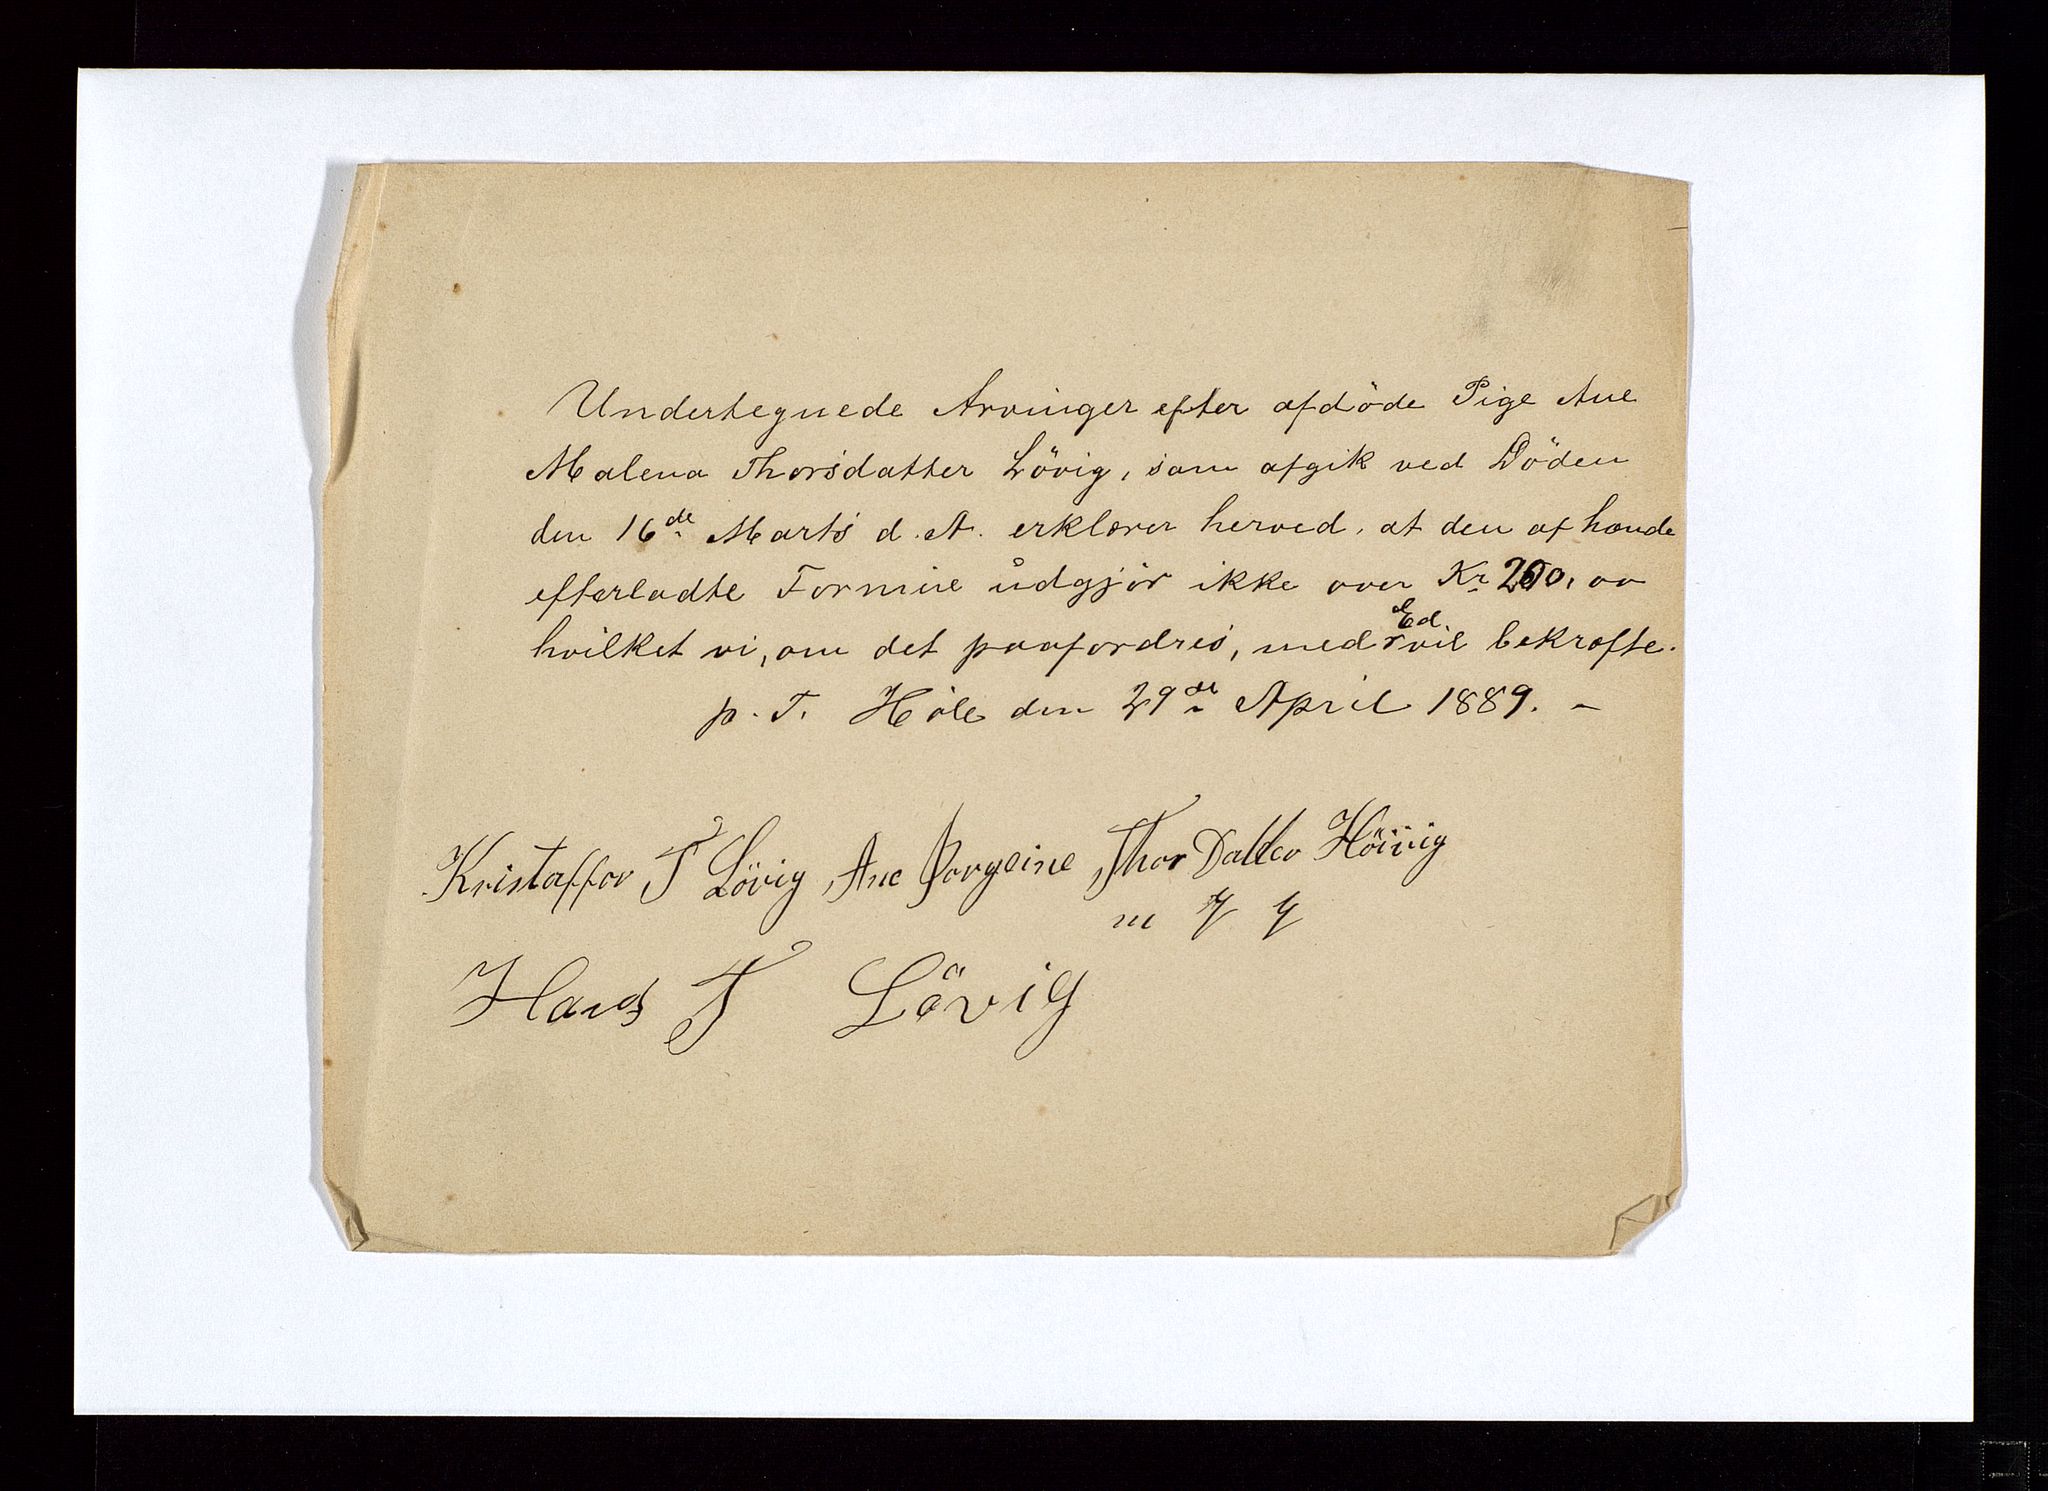 Undertegnede Arvinger efter afdöde Pige Ane
Malena Thorsdatter Lövig, som afgik ved Döden
den 16de Marts d. A. erklærer herved, at den af hænde
efterladte Formue udgjör ikke over Kr 200, oo
hvilket vi, om det paafordres, med Ed vil bekræfte.
p. T. Höle den 29de April 1889. –
Kristoffor T Lövig Ane Borgeine ThorDatter Höivig
m
Hans T Lövig